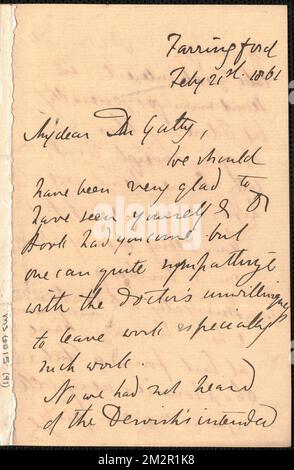 Farringford
Feby 21st. 1861
My dear Dr Gatty,
We should
have been very glad to
have seen yourself & Dr
Hook had you come but
one can quite sympathize
with the Doctor's unwillingness
to leave work especially
such work.
No we had not heard
of the Dewish's intended
Ms 6015 (9)
alamy
Image ID: 2M2R1K8
www.alamy.com